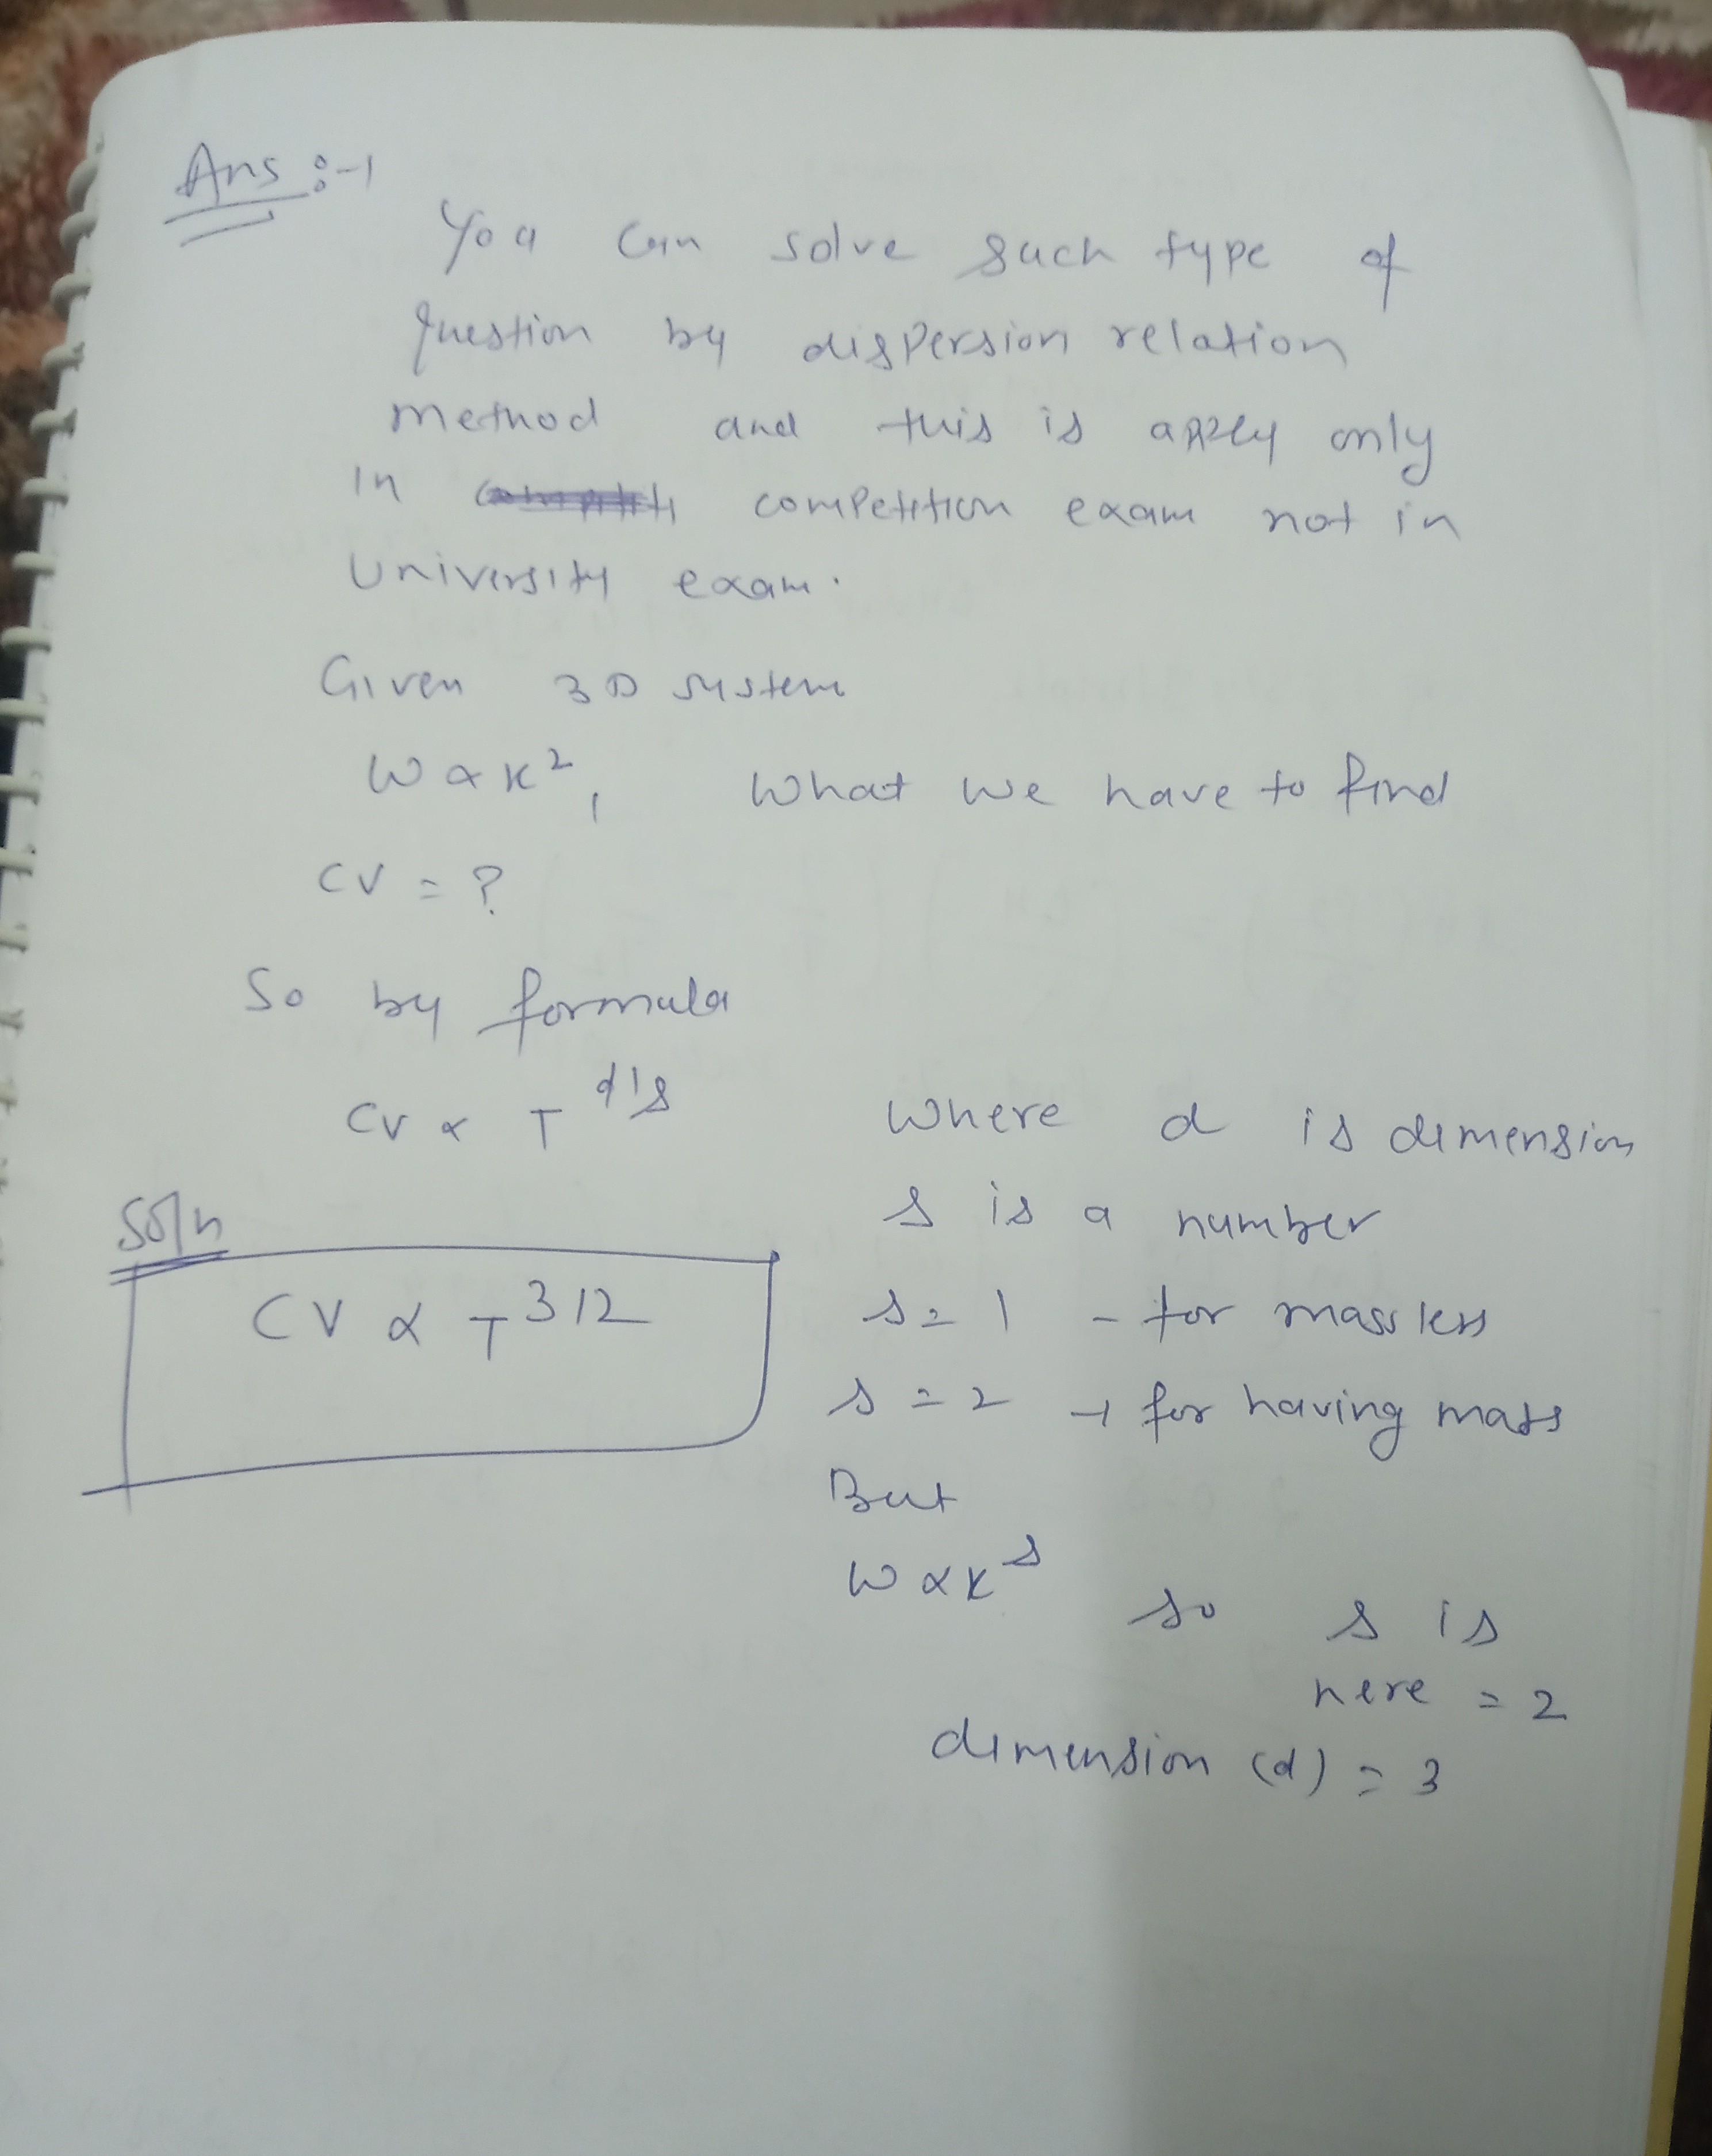 Ans :-1
You can solve such type of
question by dispersion relation
method and this is apply only
in competition exam not in
University exam.
Given 3D system
W ∝ K², What we have to find
CV = ?
So by formula
CV ∝ T^d/s Where d is dimension
s is a number
Soln
CV ∝ T^3/2
s = 1 - for mass less
s = 2 → for having mass
But
W ∝ K^s so s is
here = 2
dimension (d) = 3